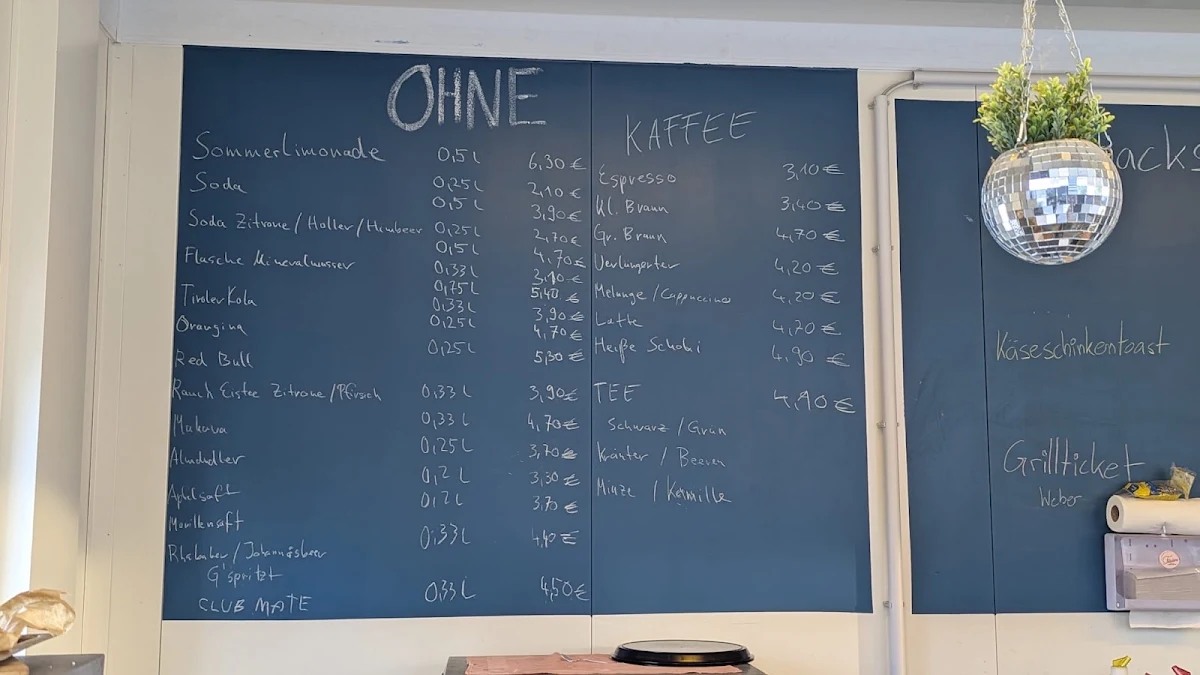 OHNE
Sommerlimonade 0,5L 6,30€
Soda 0,25L 2,10€
0,5L 3,90€
Soda Zitrone/Holler/Himbeer 0,25L 2,70€
0,5L 4,70€
Flasche Mineralwasser 0,33L 3,10€
0,75L 5,40€
Tiroler Kola 0,33L 3,90€
Orangina 0,25L 4,70€
Red Bull 0,25L 5,30€
Rauch Eistee Zitrone/Pfirsich 0,33L 3,90€
Makava 0,33L 4,70€
Almdudler 0,25L 3,70€
Apfelsaft 0,2L 3,30€
Marillensaft 0,2L 3,70€
Rhabarber/Johannisbeer 0,33L 4,40€
G'spritzt
CLUB MATE 0,33L 4,50€
KAFFEE
Espresso 3,10€
Kl. Braun 3,40€
Gr. Braun 4,70€
Verlängerter 4,20€
Melange/Cappuccino 4,20€
Latte 4,70€
Heiße Schoki 4,90€
TEE 4,10€
Schwarz/Grün
Kräuter/Beeren
Minze/Kamille
acks
Käseschinkentoast
Grillticket
Weber